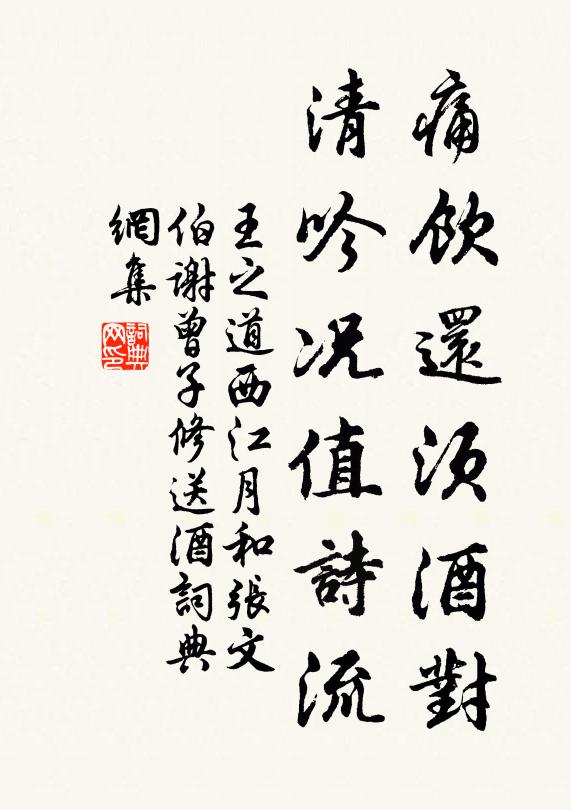 痛飲還須酒對
清吟况值詩流
王之道西江月和張文
伯謝曾子修送酒詞典
網集
詞典网印